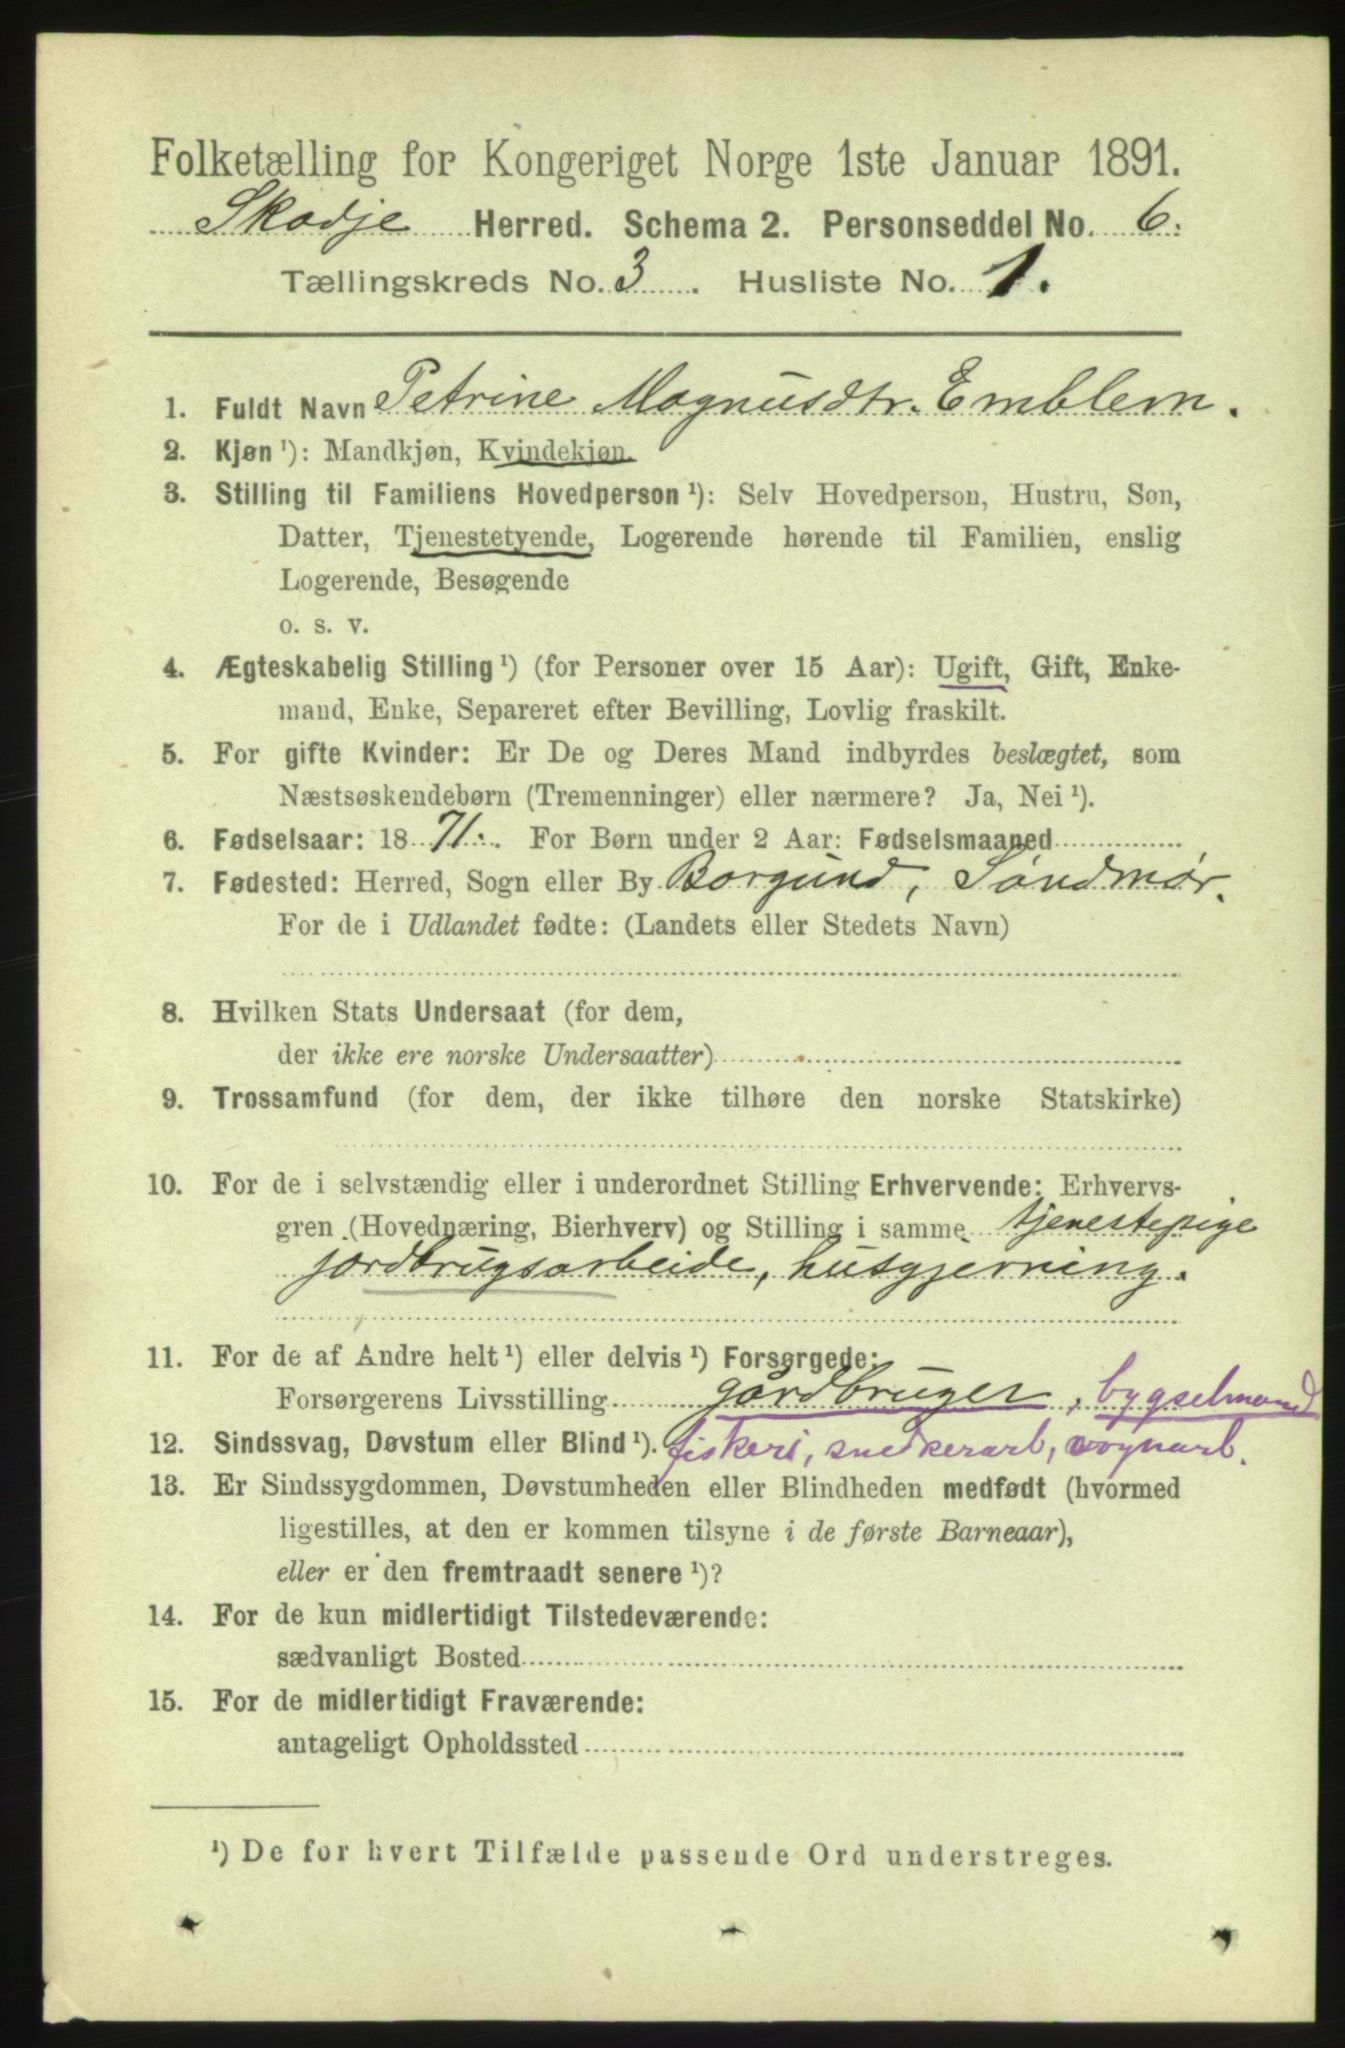 Folketælling for Kongeriget Norge 1ste Januar 1891.
Skodje Herred. Schema 2. Personseddel No. 6.
Tællingskreds No. 3. Husliste No. 1.
1. Fuldt Navn Petrine Magnusdtr. Emblem.
2. Kjøn ¹): Mandkjøn, Kvindekjøn.
3. Stilling til Familiens Hovedperson ¹): Selv Hovedperson, Hustru, Søn,
Datter, Tjenestetyende, Logerende hørende til Familien, enslig
Logerende, Besøgende
o. s. v.
4. Ægteskabelig Stilling ¹) (for Personer over 15 Aar): Ugift, Gift, Enke-
mand, Enke, Separeret efter Bevilling, Lovlig fraskilt.
5. For gifte Kvinder: Er De og Deres Mand indbyrdes beslægtet, som
Næstsøskendebørn (Tremenninger) eller nærmere? Ja, Nei ¹).
6. Fødselsaar: 18 71. For Børn under 2 Aar: Fødselsmaaned
7. Fødested: Herred, Sogn eller By Borgund, Søndmør.
For de i Udlandet fødte: (Landets eller Stedets Navn)
8. Hvilken Stats Undersaat (for dem,
der ikke ere norske Undersaatter)
9. Trossamfund (for dem, der ikke tilhøre den norske Statskirke)
10. For de i selvstændig eller i underordnet Stilling Erhvervende: Erhvervs-
gren (Hovednæring, Bierhverv) og Stilling i samme tjenestepige
jordbrugsarbeide, husgjerning.
11. For de af Andre helt ¹) eller delvis ¹) Forsørgede:
Forsørgerens Livsstilling gårdbruger, bygselmand
12. Sindssvag, Døvstum eller Blind ¹). fiskeri, snedkerarb, vognarb.
13. Er Sindssygdommen, Døvstumheden eller Blindheden medfødt (hvormed
ligestilles, at den er kommen tilsyne i de første Barneaar),
eller er den fremtraadt senere ¹)?
14. For de kun midlertidigt Tilstedeværende:
sædvanligt Bosted
15. For de midlertidigt Fraværende:
antageligt Opholdssted
¹) De for hvert Tilfælde passende Ord understreges.